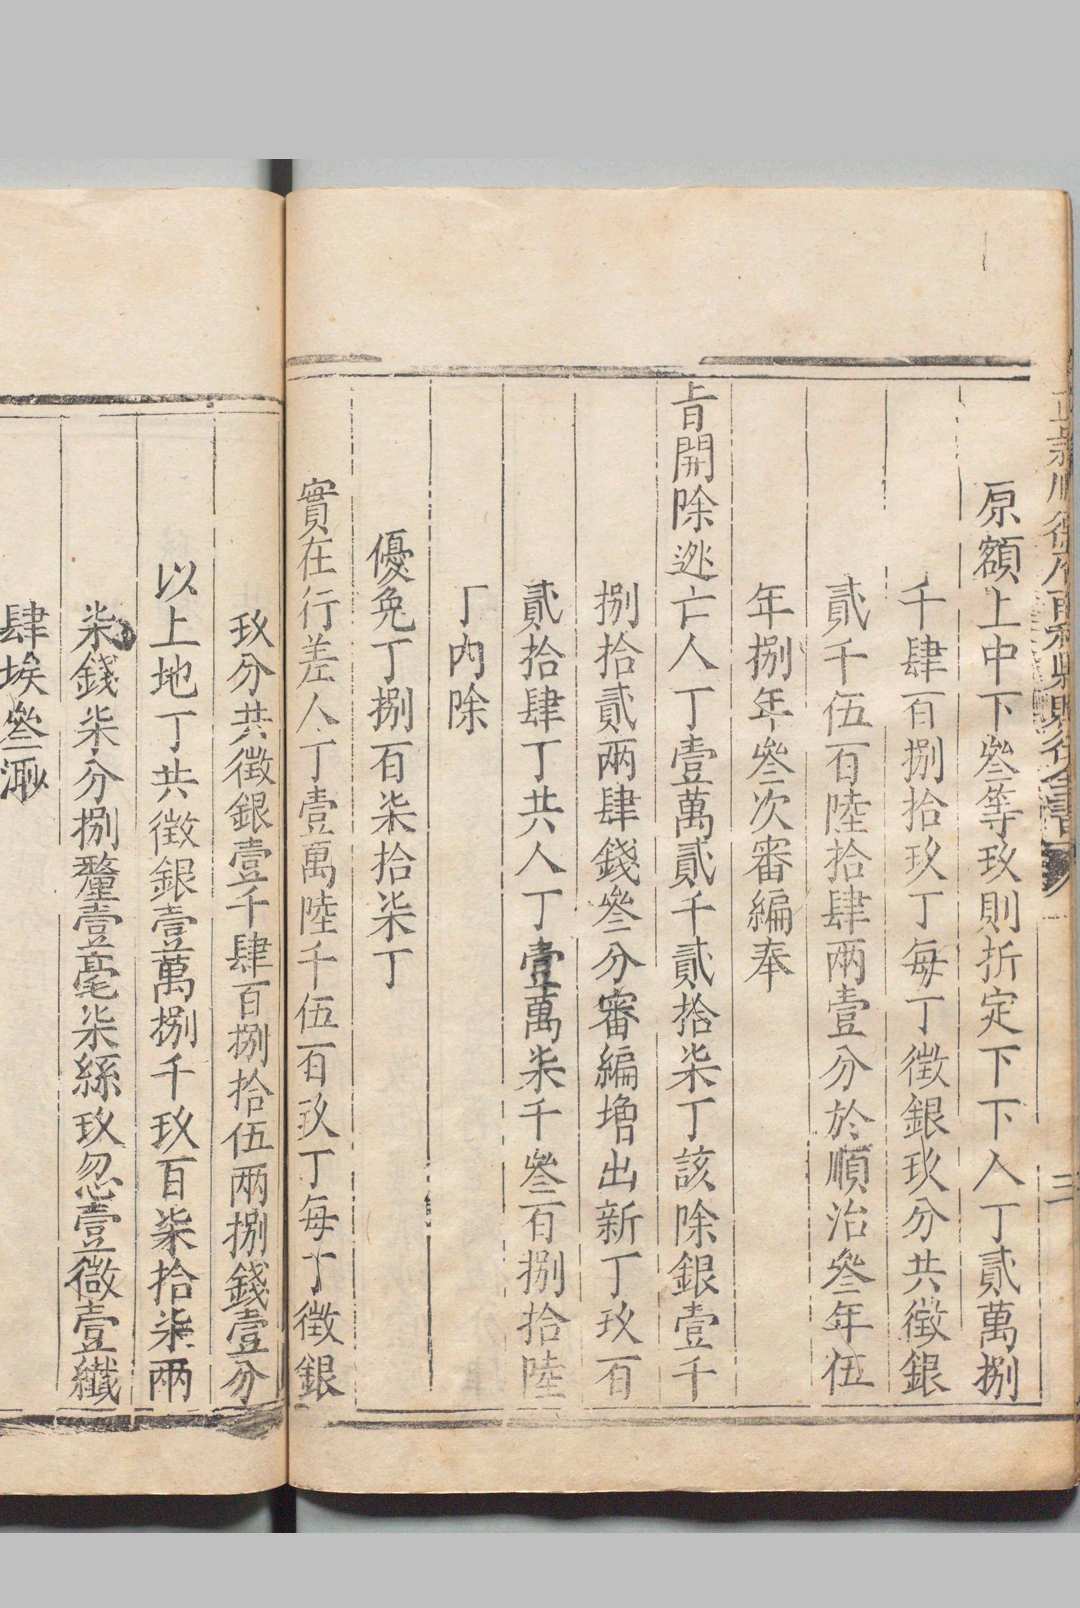 原額上中下叁等玖則折定下下人丁貳萬捌
千肆百捌拾玖丁每丁徵銀玖分共徵銀
貳千伍百陸拾肆兩壹分於順治叁年伍
年捌年叁次審編奉
旨開除逃亡人丁壹萬貳千貳拾柒丁該除銀壹千
捌拾貳兩肆錢叁分審編增出新丁玖百
貳拾肆丁共人丁壹萬柒千叁百捌拾陸
丁內除
優免丁捌百柒拾柒丁
實在行差人丁壹萬陸千伍百玖丁每丁徵銀
玖分共徵銀壹千肆百捌拾伍兩捌錢壹分
以上地丁共徵銀壹萬捌千玖百柒拾柒兩
柒錢柒分捌釐壹毫柒絲玖忽壹微壹纖
肆埃叁渺